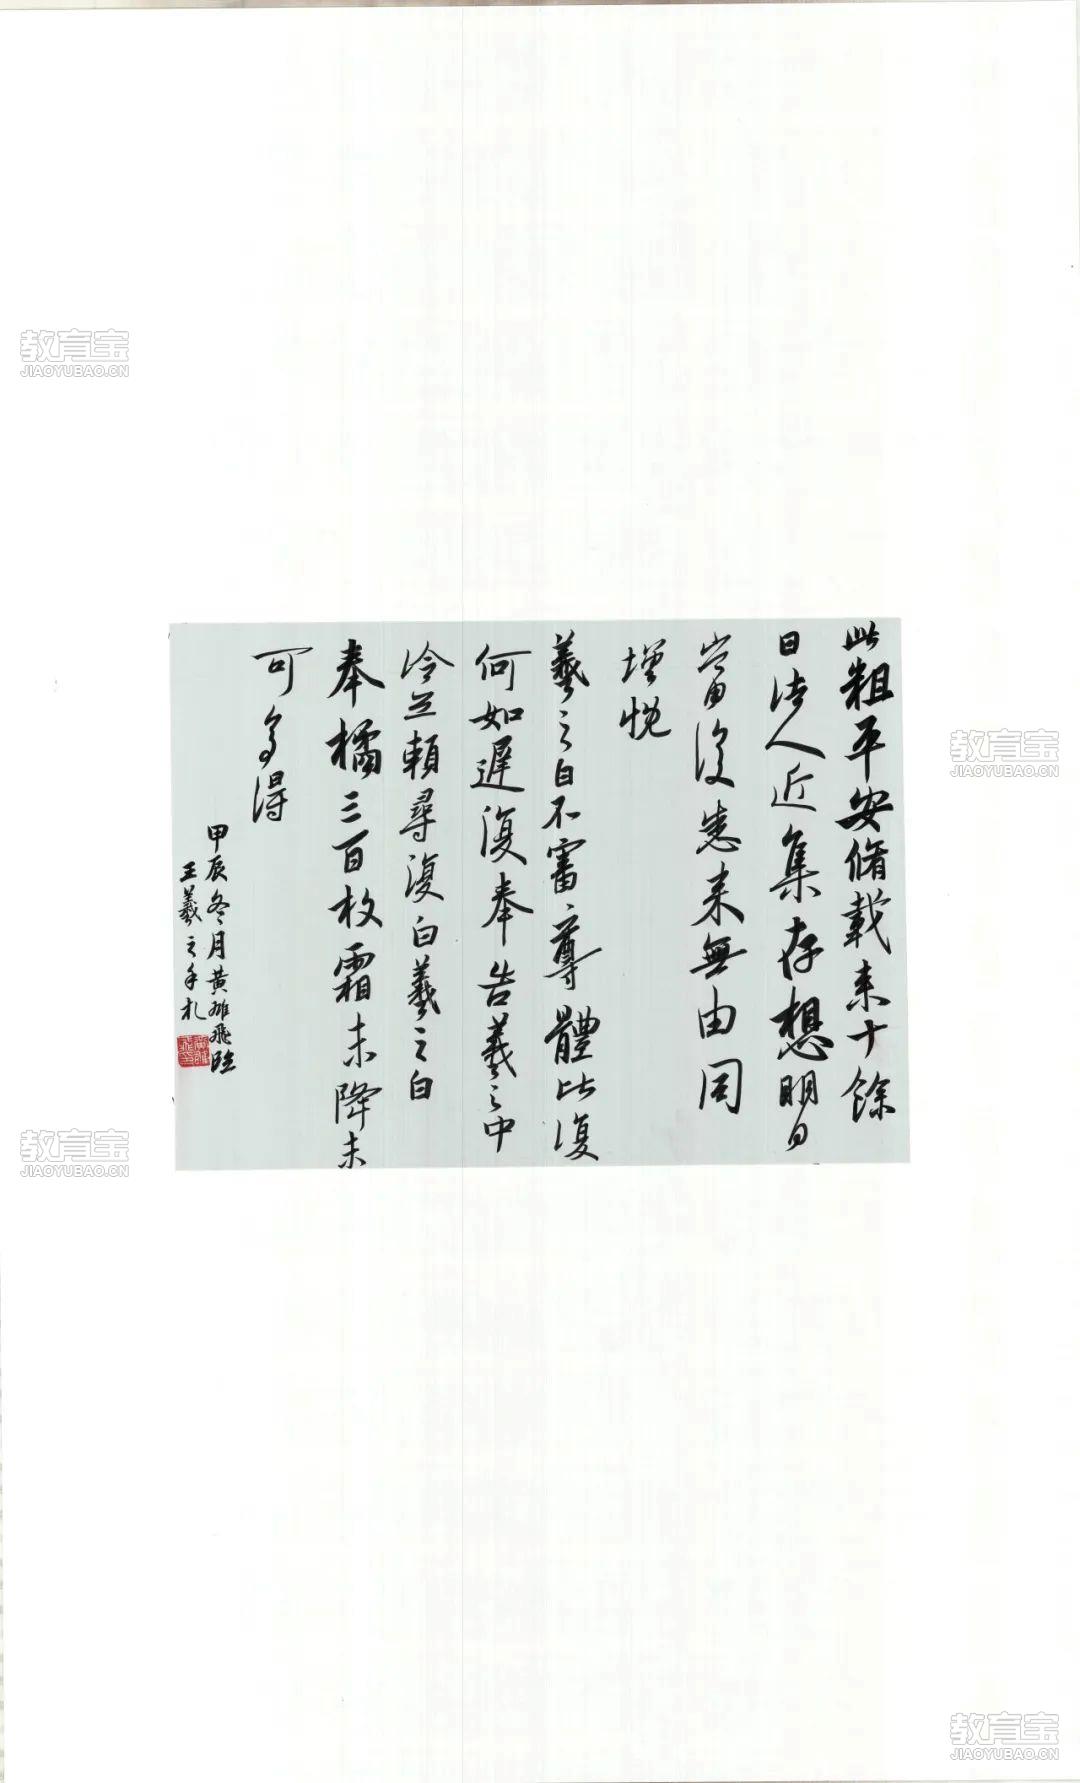 教育宝
JIAOYUBAO.CN
此粗平安脩載来十餘
日諸人近集存想明日
當復悉来無由同
增慨
羲之白不審尊體比復
何如遲復奉告羲之中
冷無賴尋復白羲之白
奉橘三百枚霜未降未
可多得
甲辰冬月黄雄飛臨
王羲之手札
教育宝
JIAOYUBAO.CN
教育宝
JIAOYUBAO.CN
教育宝
JIAOYUBAO.CN